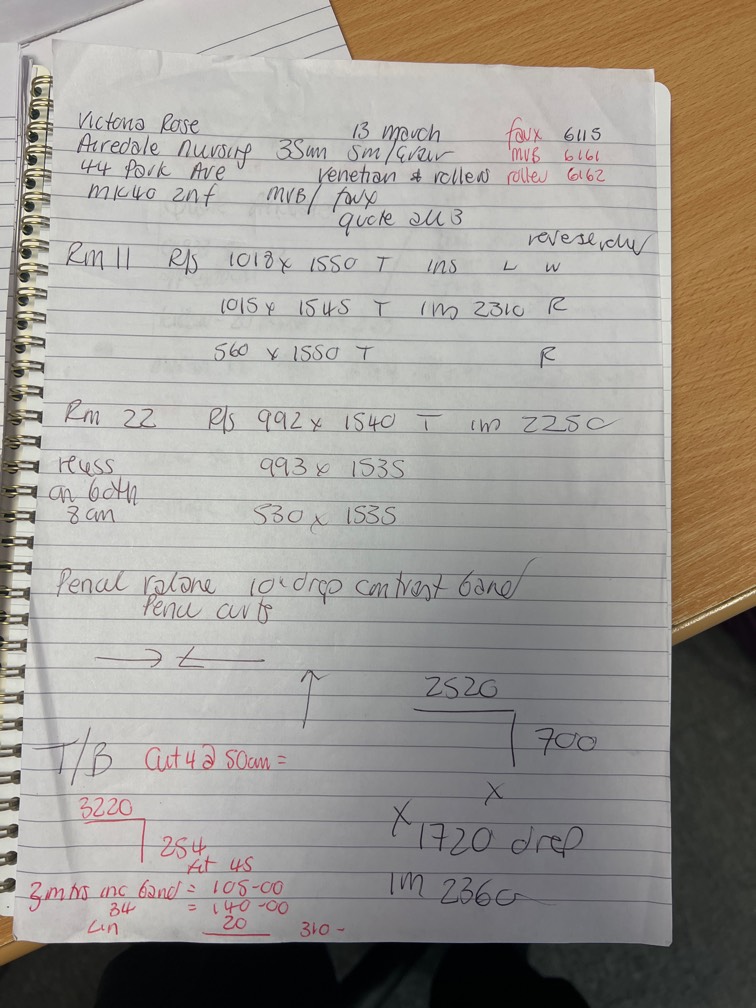 Victoria Rose 13 march faux 6115
Airedale nursing 35mm sm/ MVB 6161
44 Park Ave venetian & rollers roller 6162
mk40 2nf MVB/ faux
quote all 3
Rm 11 R/s 1018 x 1550 T ins L W
1015 x 1545 T im 2310 R
560 x 1550 T R
Rm 22 R/s 992 x 1540 T im 2250
recess 993 x 1535
on both
8cm 530 x 1535
10" drop contrast band
2520
700
T/B Cut 4 @ 50cm =
x
3220
x 1720 drop
254
fit 45
im 2360
3 mtrs inc band = 105-00
34 = 140-00
Lin 20 310-